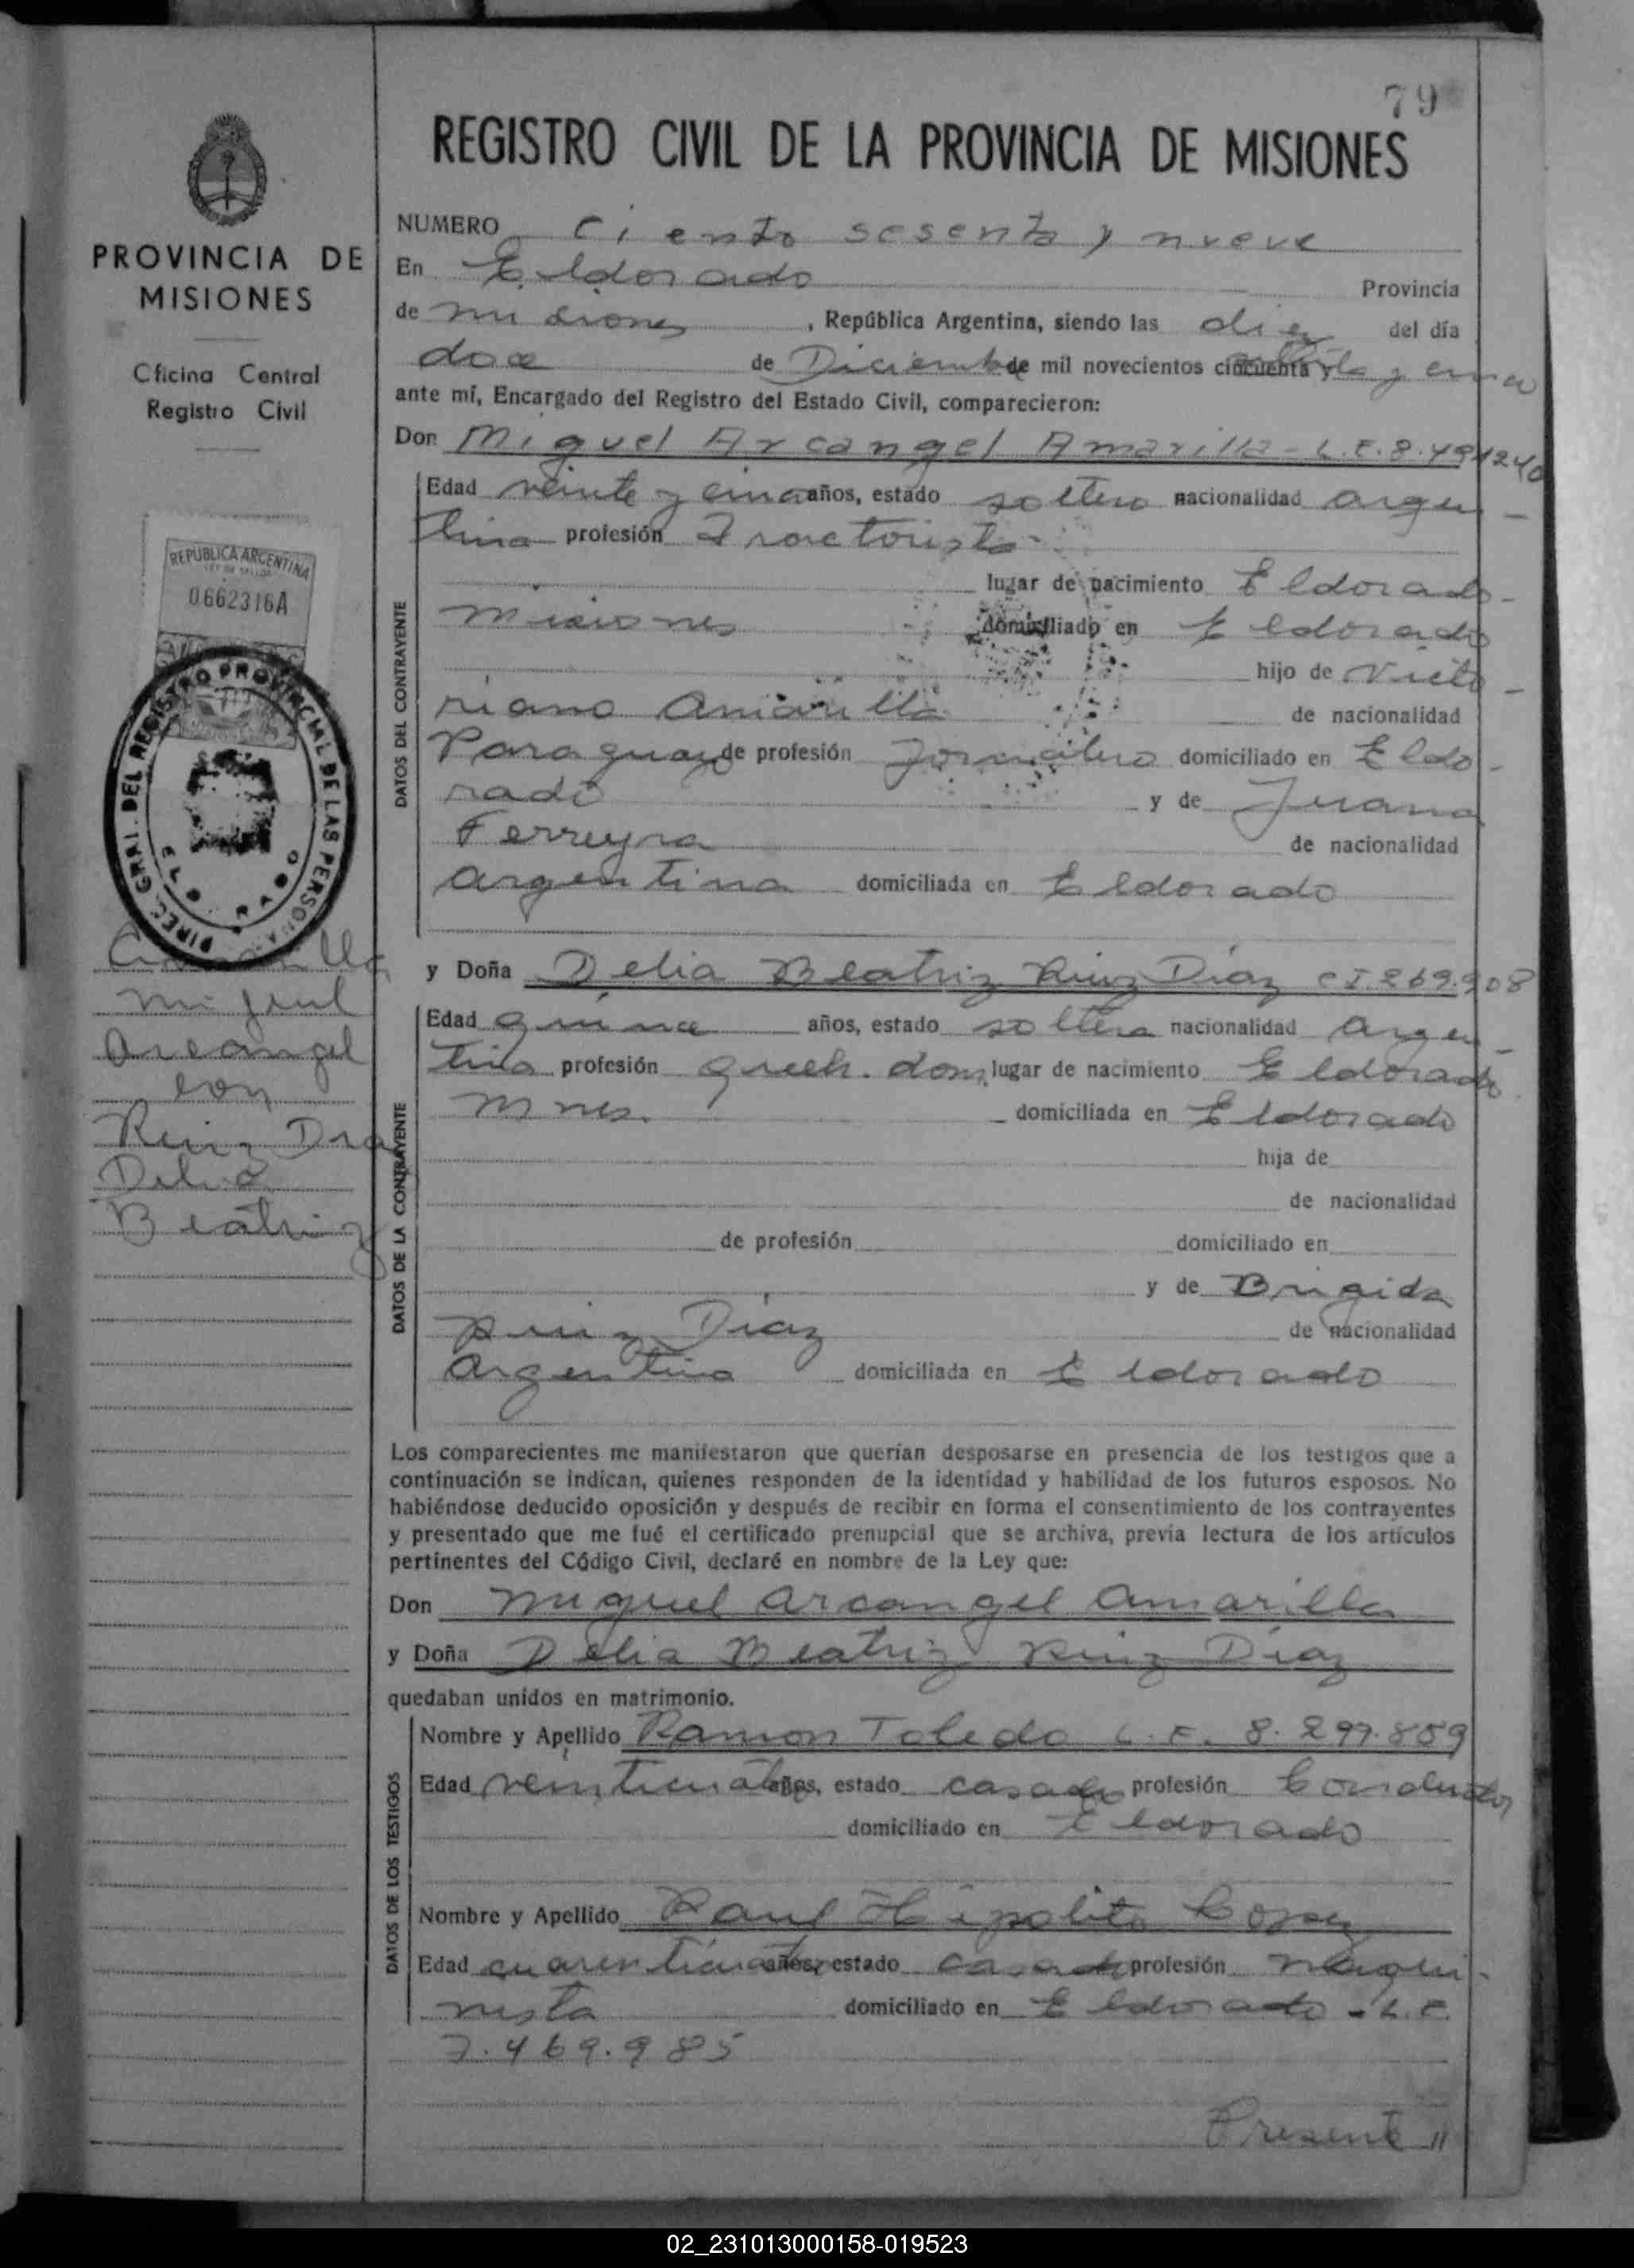 79
REGISTRO CIVIL DE LA PROVINCIA DE MISIONES
PROVINCIA DE
MISIONES
Oficina Central
Registro Civil
REPUBLICA ARGENTINA
0662316A
DIREC. GRAL. DEL REGISTRO PROVINCIAL DE LAS PERSONAS
ELDORADO
Amarilla
Miguel
Arcangel
con
Ruiz Diaz
Delia
Beatriz
NUMERO Ciento sesenta y nueve
En Eldorado Provincia
de Misiones, República Argentina, siendo las diez del día
doce de Diciembre de mil novecientos cincuenta y
ante mí, Encargado del Registro del Estado Civil, comparecieron:
Don Miguel Arcangel Amarilla - L.E. 8.491240
DATOS DEL CONTRAYENTE
Edad veinte y cinco años, estado soltero nacionalidad argen-
tina profesión Tractorista
lugar de nacimiento Eldorado-
Misiones domiciliado en Eldorado
hijo de Victo-
riano Amarilla de nacionalidad
Paraguayo de profesión Jornalero domiciliado en Eldo-
rado y de Juana
Ferreyra de nacionalidad
argentina domiciliada en Eldorado
y Doña Delia Beatriz Ruiz Diaz C.I. 269.908
DATOS DE LA CONTRAYENTE
Edad quince años, estado soltera nacionalidad argen-
tina profesión queh. dom. lugar de nacimiento Eldorado
Mnes. domiciliada en Eldorado
hija de
de nacionalidad
de profesión domiciliado en
y de Brigida
Ruiz Díaz de nacionalidad
argentina domiciliada en Eldorado
Los comparecientes me manifestaron que querían desposarse en presencia de los testigos que a
continuación se indican, quienes responden de la identidad y habilidad de los futuros esposos. No
habiéndose deducido oposición y después de recibir en forma el consentimiento de los contrayentes
y presentado que me fué el certificado prenupcial que se archiva, previa lectura de los artículos
pertinentes del Código Civil, declaré en nombre de la Ley que:
Don Miguel Arcangel Amarilla
y Doña Delia Beatriz Ruiz Díaz
quedaban unidos en matrimonio.
DATOS DE LOS TESTIGOS
Nombre y Apellido Ramon Toledo L.E. 8.299.859
Edad años, estado casado profesión Conductor
domiciliado en Eldorado
Nombre y Apellido Raul Hipolito
Edad años, estado casado profesión maqui-
nista domiciliado en Eldorado - L.E.
7.469.985
Presente //
02_231013000158-019523